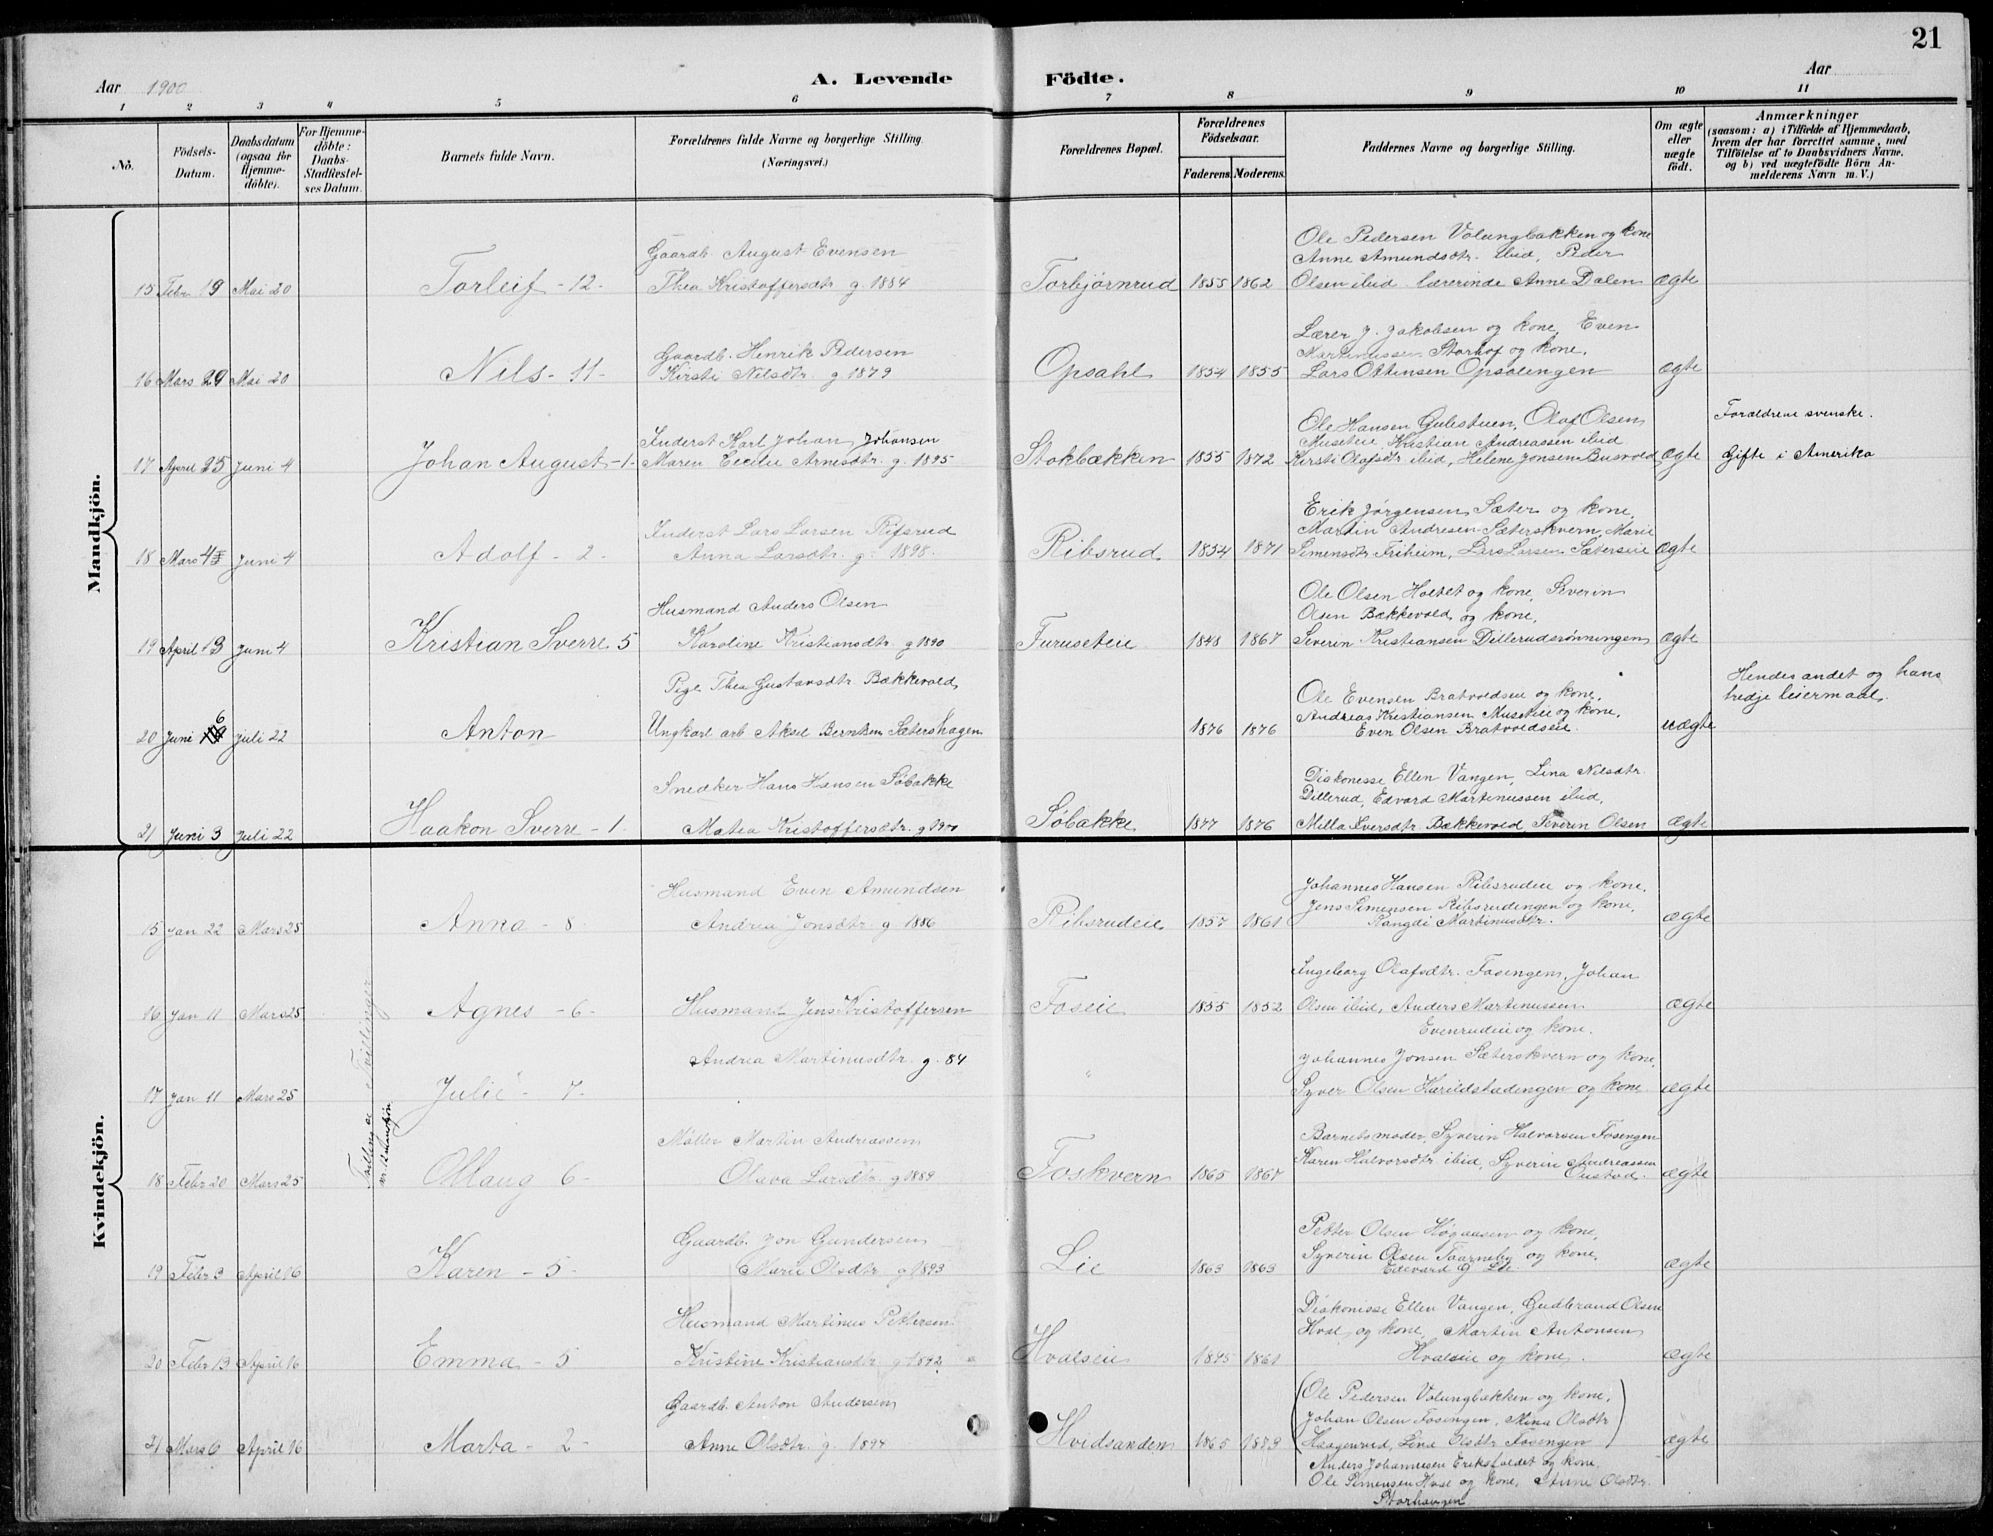 21
Aar 1900
A. Levende Födte.
Aar
1 2 3 4 5 6 7 8 9 10 11
No.
Födsels-Datum.
Daabsdatum (ogsaa for Hjemme-döbte).
For Hjemme-döbte: Daabs-Stadfæstel-ses Datum.
Barnets fulde Navn.
Forældrenes fulde Navne og borgerlige Stilling.
(Næringsvei.)
Forældrenes Bopæl.
Forældrenes Födselsaar.
Faderens. Moderens.
Faddernes Navne og borgerlige Stilling.
Om ægte eller uægte födt.
Anmærkninger
(saasom: a) i Tilfælde af Hjemmedaab,
hvem der har forrettet samme, med
Tilföielse af to Daabsvidners Navne.
og b) ved uægtefödte Börn An-
melderens Navn m. V.)
Mandkjön.
Gaardb. August Evensen
Ole Pedersen Volungbakken og kone
Anne Amundsdtr. ibid, Peder
15 Febr 19 Mai 20 Torleif - 12 - Thea Kristoffersdtr g. 1884 Torbjørnrud 1855 1862 Olsen ibid. lærerinde Anne Dalen ægte
Lærer J. Jakobsen og kone, Even
Gaardb. Henrik Pedersen
Martinussen Storhof og kone.
16 Mars 29 Mai 20 Nils - 11 - Kirsti Nilsdtr. g 1879 Opsahl 1854 1855 Lars Ottinsen Opsalengen ægte
Forældrene svenske.
Ole Hansen Gulestuen, Olaf Olsen
Inderst Karl Johan Johansen
Museteie, Kristian Andreassen ibid
17 April 25 Juni 4 Johan August - 1 - Maren Cecilie Arnesdtr. g. 1895 Stokbækken 1855 1872 Kirsti Olafsdtr ibid, Helene Jonsen Busvold ægte Gifte i Amerika
Erik Jørgensen Sæter og kone,
Inderst Lars Larsen Rifsrud
Martin Andresen Sæterskvern, Marie
18 Mars 4 Juni 4 Adolf - 2 - Anna Larsdtr. g. 1898. Ribsrud 1854 1871 Simensdtr Friheim, Lars Larsen Sætereie ægte
Ole Olsen Holtet og kone, Severin
Husmand Anders Olsen
Olsen Bækkevold og kone,
19 April 13 Juni 4 Kristian Sverre 5 Karoline Kristiansdtr g 1890 Furuseteie 1848 1867 Severin Kristiansen Dillerudsrønningen ægte
Hendes andet og hans
tredje leiermaal.
Pige Thea Gustavsdtr. Bækkevold
Ole Evensen Bratvoldseie og kone,
Andreas Kristiansen Museteie og kone,
20 Juni 6 Juli 22 Anton Ungkarl arb Aksel Berntsen Sætershagen 1876 1876 Even Olsen Bratvoldseie. uægte
Diakonesse Ellen Vangen, Lina Nilsdtr.
Snedker Hans Hansen Søbakke
Dillerud, Edvard Martinussen ibid,
21 Juni 3 Juli 22 Haakon Sverre - 1. Matea Kristoffersdtr. g 1900 Søbakke 1877 1876 Milla Iversdtr. Bækkevold Severin Olsen ægte
Kvindekjön.
Husmand Even Amundsen
Johannes Hansen Ribsrudeie og kone.
Jens Simensen Ribsrudengen og kone,
15 Jan 22 Mars 25 Anna - 8 - Andrea Jonsdtr. g. 1886 Ribsrudeie 1857 1861 Rangdi Martinusdtr. ægte
Ingeborg Olafsdtr. Fosengen, Johan
16 Jan 11 Mars 25 Agnes - 6 - Husmand Jens Kristoffersen Foseie 1855 1852 Olsen ibid, Anders Martinussen ægte
Evenrudeie og kone.
Tvillinger
Andrea Martinusdtr. g. 84
Johannes Jonsen Sæterskvern og kone,
17 Jan 11 Mars 25 Julie - 7 - " Syver Olsen Harildstadengen og kone ægte
Tvilling av
nr. 12 Mandkjøn
Møller Martin Andreassen
Barnets moder, Syverin Halvorsen Fosengen
Karen Halvorsdtr ibid, Syverin Andreassen
18 Febr 20 Mars 25 Ollaug 6 - Olava Larsdtr. g 1889 Foskvern 1865 1867 Onstad. ægte
Gaardb. Jon Gundersen
Petter Olsen Høgaasen og kone,
Syverin Olsen Taarneby og kone,
19 Febr 3 April 16 Karen - 5 - Marie Olsdtr. g 1893 Lie 1863 1863 Edevard G. Lie ægte
Husmand Martinus Pettersen
Diakonisse Ellen Vangen, Gudbrand Olsen
Hval og kone, Martin Antonsen
20 Febr 13 April 16 Emma - 5 Kristine Kristiansdtr g 1892 Hvalseie 1845 1861 Hvalseie og kone. ægte
Gaardb. Anton Andersen
Ole Pedersen Volungbækken og kone,
Johan Olsen Fosengen, Mina Olsdtr
21 Mars 6 April 16 Marta - 2 - Anne Olsdtr. g. 1894 Hvidsanden 1865 1873 Haagenrud, Lina Olsdtr Fosengen ægte
Anders Johannesen Eriksfaldet og kone,
Ole Simensen Hval og kone, Stine Olsdtr.
Storhaugen